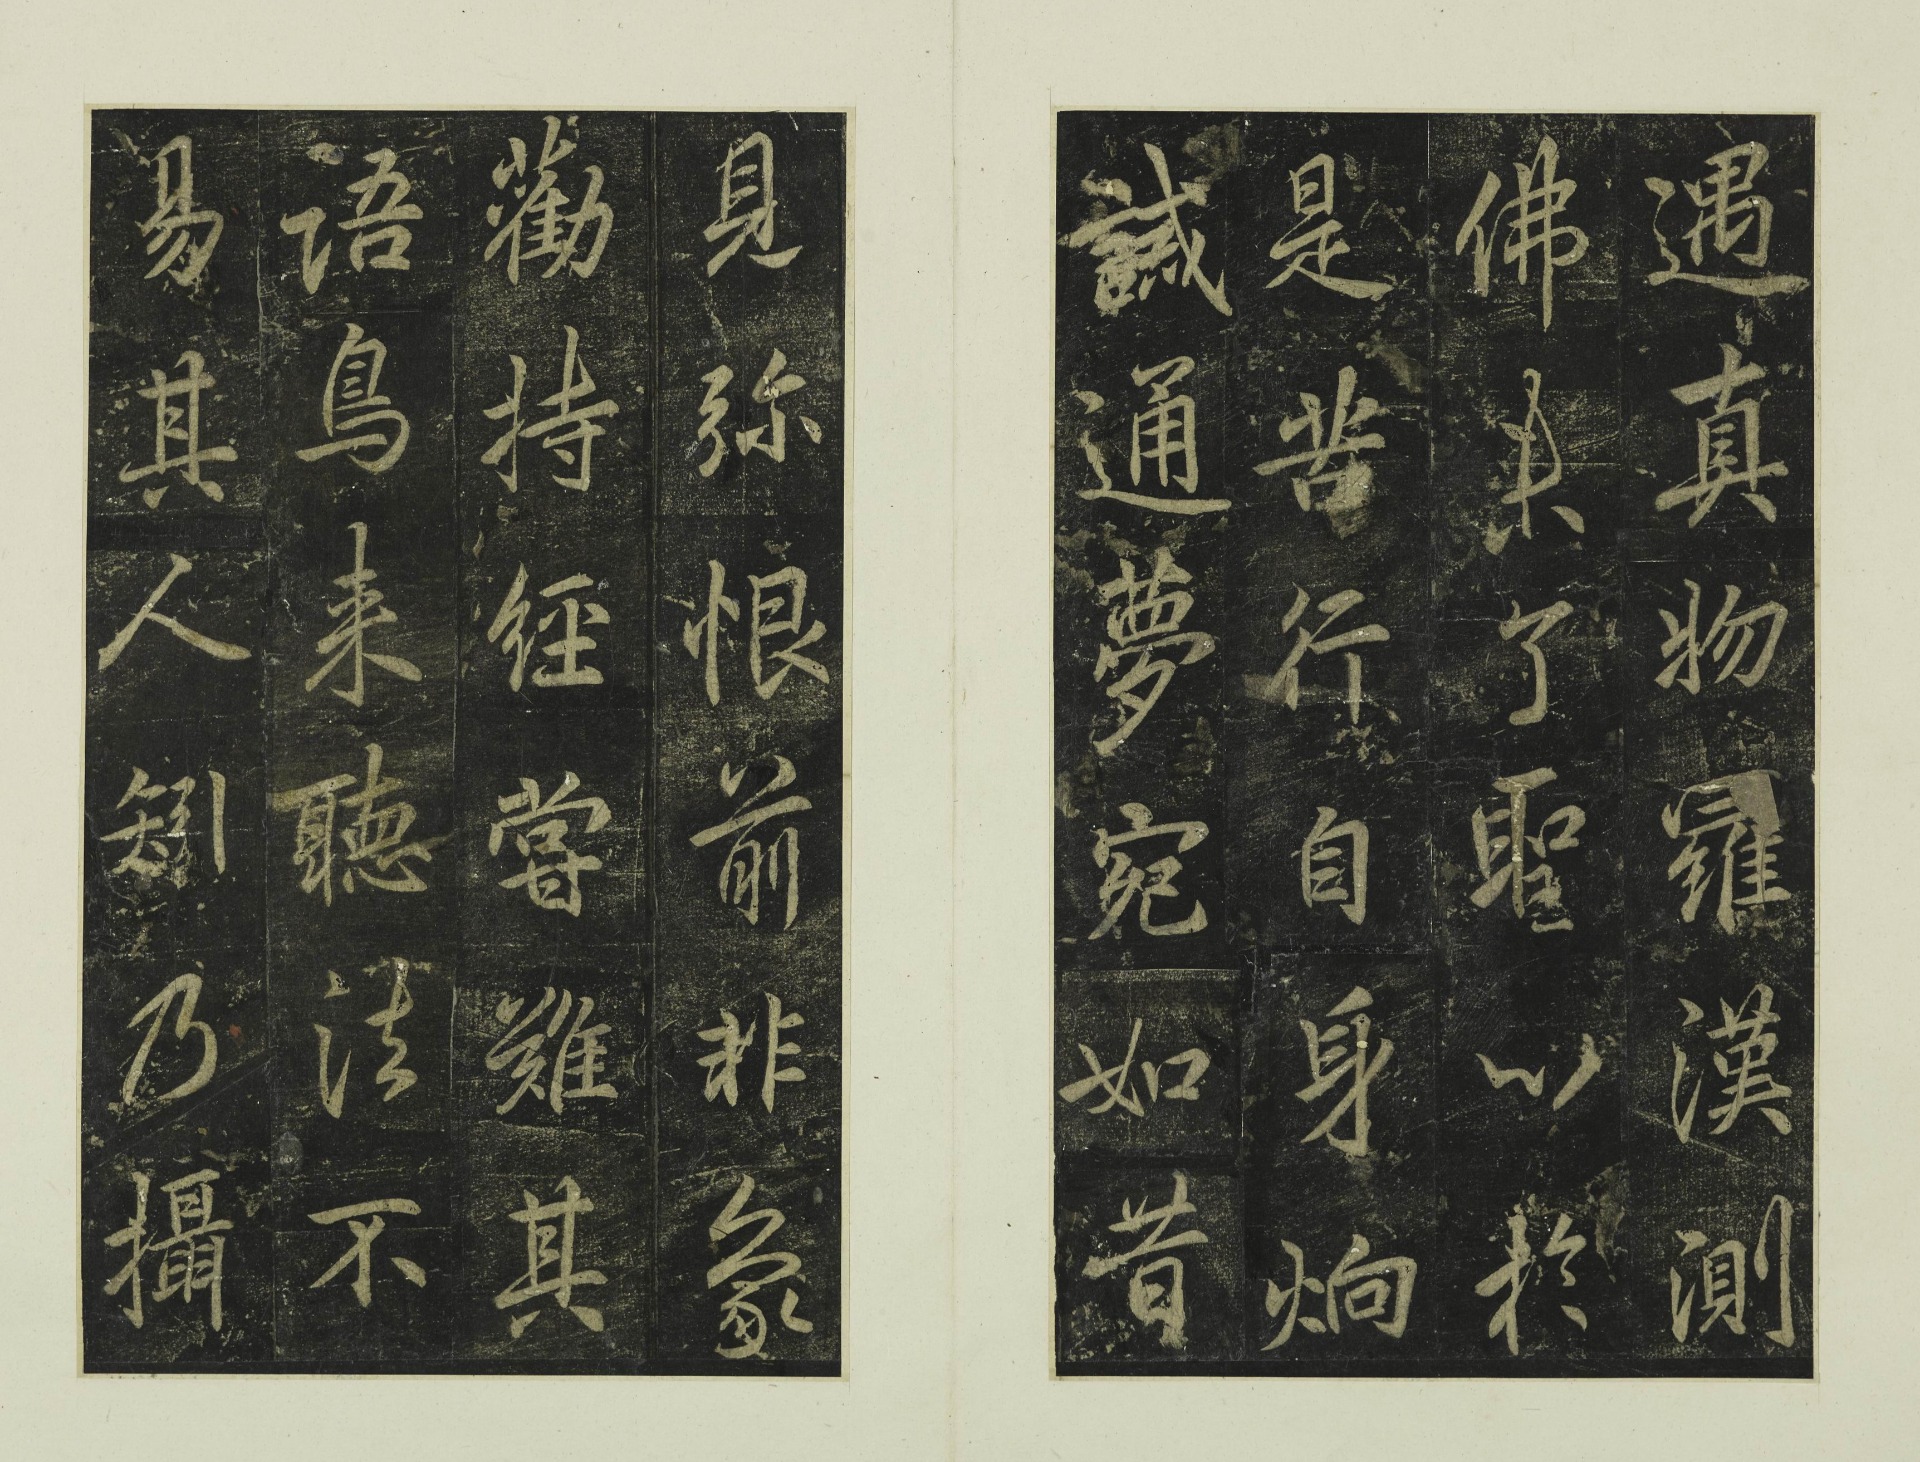 遇真物羅漢測
佛了聖以於
是苦行自身炯
誠通夢宛如昔
見弥恨前非象
勸持經嘗難其
語鳥来聽法不
易其人矧乃攝